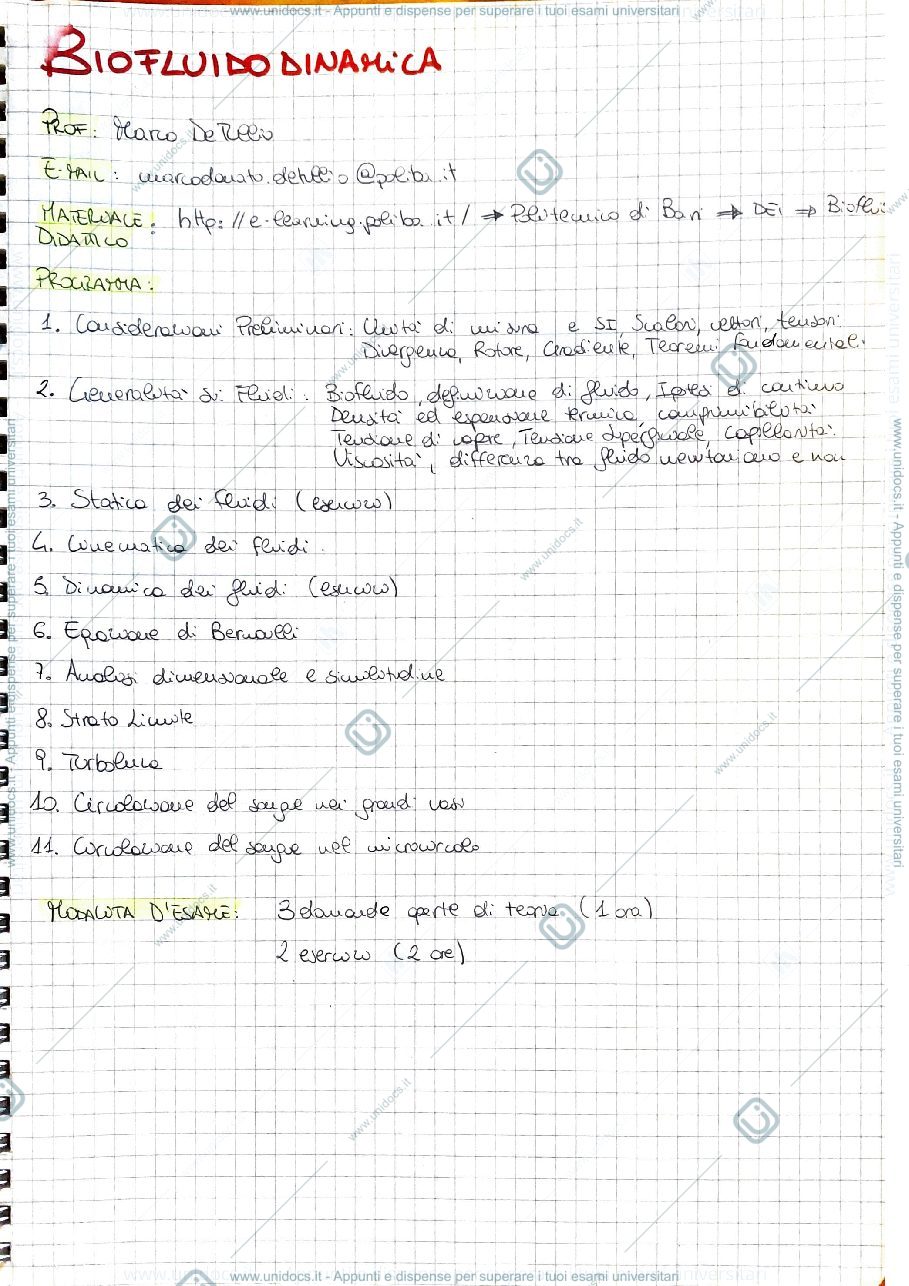 www.unidocs.it - Appunti e dispense per superare i tuoi esami universitari
BIOFLUIDODINAMICA
PROF: Marco De Tullio
E-MAIL: marcodonato.detullio@poliba.it
MATERIALE DIDATTICO: http://e-learning.poliba.it/ ⇒ Politecnico di Bari ⇒ DEI ⇒ Bioflui
PROGRAMMA:
1. Considerazioni Preliminari: Unità di misura e SI, Scalari, vettori, tensori
Divergenza, Rotore, Gradiente, Teoremi fondamentali.
2. Generalità sui Fluidi: Biofluido, definizione di fluido, Ipotesi di continuo
Densità ed espansione termica, comprimibilità
Tensione di vapore, Tensione superficiale, capillarità.
Viscosità, differenza tra fluido newtoniano e non
3. Statica dei fluidi (esercizio)
4. Cinematica dei fluidi.
5. Dinamica dei fluidi (esercizio)
6. Equazione di Bernoulli
7. Analisi dimensionale e similitudine
8. Strato Limite
9. Turbolenza
10. Circolazione del sangue nei grandi vasi
11. Circolazione del sangue nel microcircolo
MODALITA D'ESAME: 3 domande aperte di teoria (1 ora)
2 esercizio (2 ore)
www.unidocs.it - Appunti e dispense per superare i tuoi esami universitari